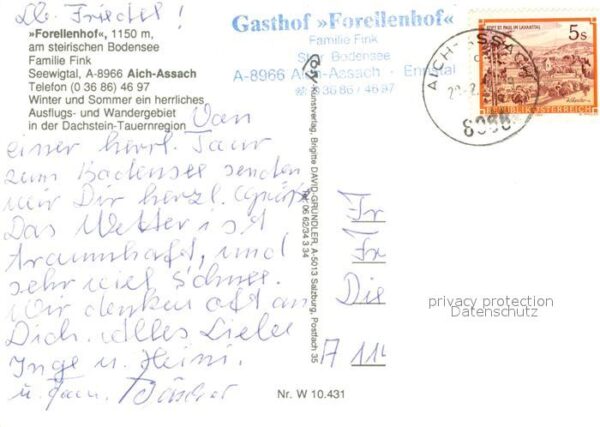 Lb. Friedel!
»Forellenhof«, 1150 m,
am steirischen Bodensee
Familie Fink
Seewigtal, A-8966 Aich-Assach
Telefon (0 36 86) 46 97
Winter und Sommer ein herrliches
Ausflugs- und Wandergebiet
in der Dachstein-Tauernregion
Gasthof »Forellenhof«
Familie Fink
Bodensee
A-8966 Aich-Assach - Ennstal
Tel. 0 36 86 / 46 97
AICH-ASSACH
ST. PAUL IM LAVANTTAL
5s
REPUBLIK ÖSTERREICH
Von
einer herrl. Tour
zum Bodensee senden
wir Dir herzl. Grüße
Das Wetter ist
traumhaft, und
sehr viel Schnee.
Wir denken oft an
Dich. Alles Liebe
Inge u. Heini
u. Fam.
Kunstverlag, Brigitte DAVID-GRÜNDLER, A-5013 Salzburg, Postfach 35
Tel. 06 62/34 3 34
Fr
Die
A 11
privacy protection
Datenschutz
Nr. W 10.431